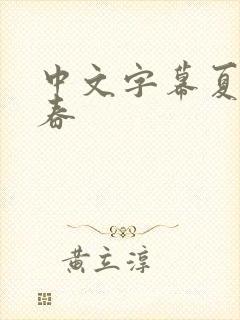 中文字幕夏
春
黄立淳